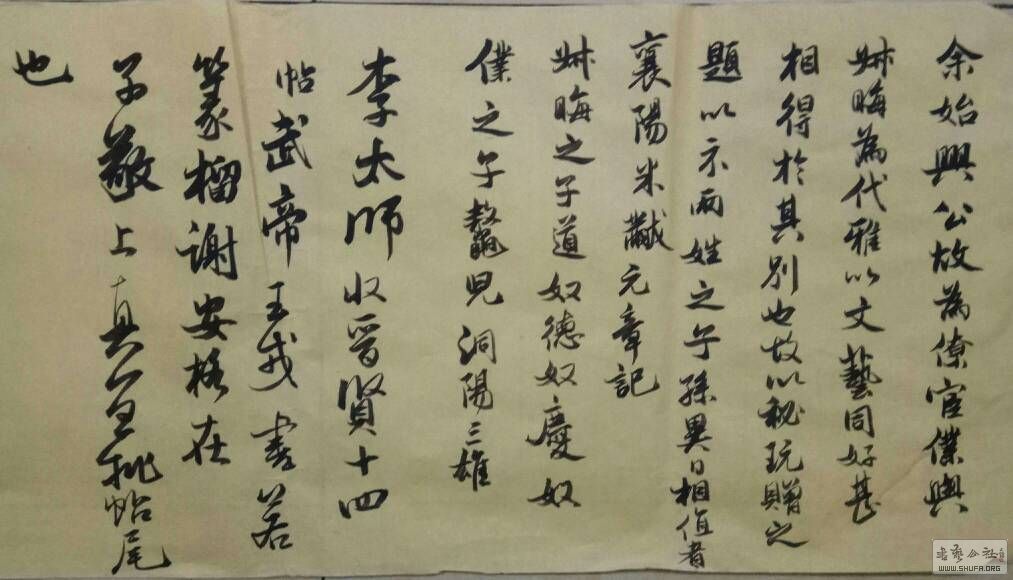 余始興公故為僚宦僕與
叔晦為代雅以文藝同好甚
相得於其別也故以秘玩贈之
題以示兩姓之子孫異日相值者
襄陽米黻元章記
叔晦之子道奴德奴慶奴
僕之子鼇兒洞陽三雄
李太師收晋賢十四
帖武帝王戎書若
篆榴謝安格在
子敬上真宜批帖尾
也
書藝公社
WWW.SHUFA.ORG